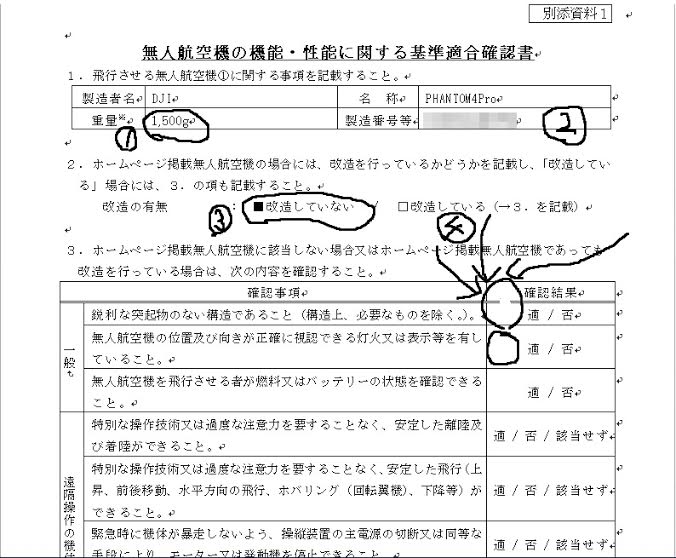 別添資料1
無人航空機の機能・性能に関する基準適合確認書
1．飛行させる無人航空機①に関する事項を記載すること。
製造者名 DJI 名 称 PHANTOM4Pro
重量※ 1,500g 製造番号等
① ②
2．ホームページ掲載無人航空機の場合には、改造を行っているかどうかを記載し、「改造してい
る」場合には、3．の項も記載すること。
改造の有無 ： ■改造していない / □改造している（→3．を記載）
③ ④
3．ホームページ掲載無人航空機に該当しない場合又はホームページ掲載無人航空機であっても
改造を行っている場合は、次の内容を確認すること。
確認事項 確認結果
一般
鋭利な突起物のない構造であること（構造上、必要なものを除く。）。 適 / 否
無人航空機の位置及び向きが正確に視認できる灯火又は表示等を有し
ていること。 適 / 否
無人航空機を飛行させる者が燃料又はバッテリーの状態を確認できる
こと。 適 / 否
遠隔操作の機
特別な操作技術又は過度な注意力を要することなく、安定した離陸及
び着陸ができること。 適 / 否 / 該当せず
特別な操作技術又は過度な注意力を要することなく、安定した飛行（上
昇、前後移動、水平方向の飛行、ホバリング（回転翼機）、下降等）が
できること。 適 / 否 / 該当せず
緊急時に機体が暴走しないよう、操縦装置の主電源の切断又は同等な
手段により、モーター又は発動機を停止できること。 適 / 否 / 該当せず